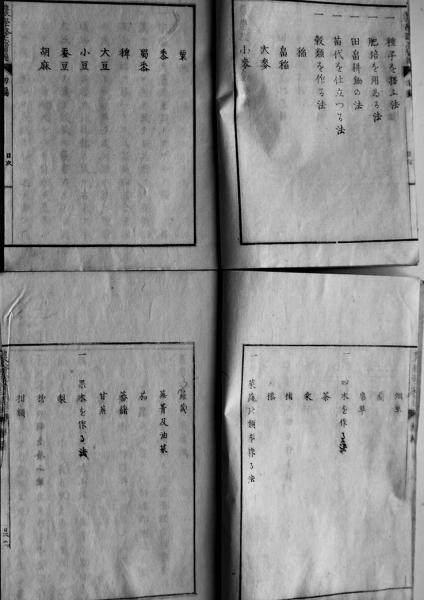 一 種子を擇ふ法
一 肥培を用ゐる法
一 田畠耕鋤の法
一 苗代を仕立つる法
一 穀類を作る法
稲
畠稲
大麥
小麥
粟
黍
蜀黍
稗
大豆
小豆
蚕豆
胡麻
目次
烟草
藍
一 四木を作る法
茶
桑
楮
一 菜蔬の類を作る法
蘿蔔
蕪菁及油菜
茄
蕃藷
甘蔗
一 果木を作る法
梨
柑類